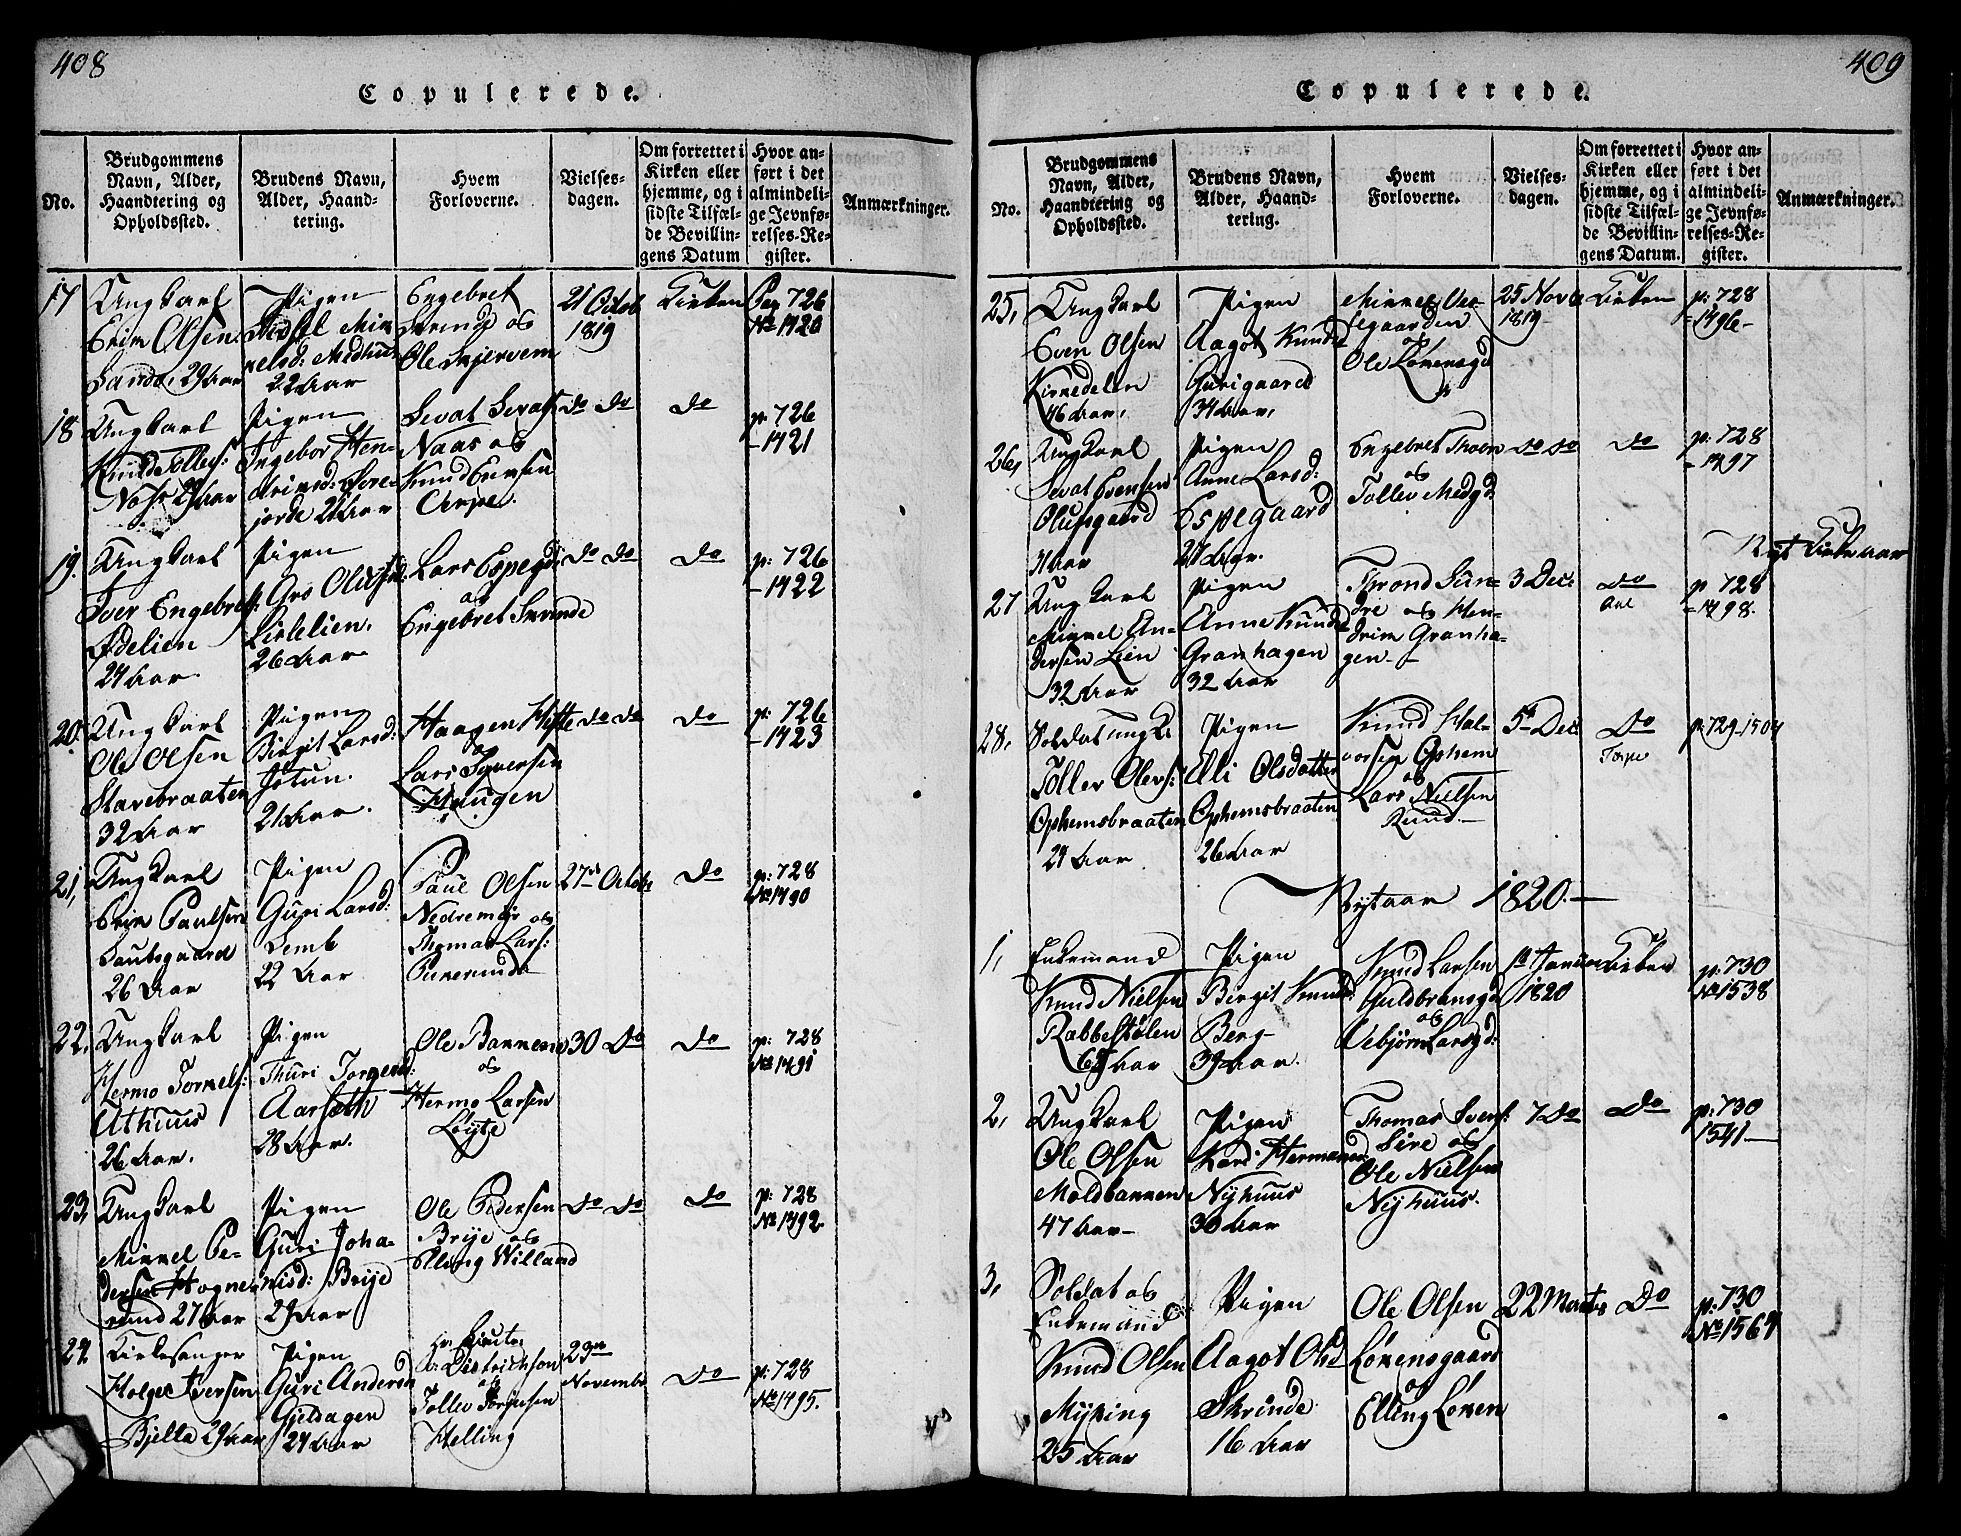 408
Copulerede.
No.
Brudgommens
Navn, Alder,
Haandtering og
Opholdssted.
Brudens Navn,
Alder, Haand-
tering.
Hvem
Forloverne.
Vielses-
dagen.
Om forrettet i
Kirken eller
hjemme, og i
sidste Tilfæl-
de Bevillin-
gens Datum
Hvor an-
ført i det
almindeli-
ge Jevnfø-
relses-Re-
gister.
Anmærkninger.
17
Ungkarl
Erik Olsen
Sando, 29 Aar
Pigen
22 Aar
Engebret
Skrinde og
Ole Skjervem
21 Octob
1819
Kirken
Pag 726
No 1420
18
Ungkarl
Knud Tollefs:
Pigen
Ingebor Hen-
driksd:
Sevat Sevats:
Naas og
Knud Eriksen
do do
do
p: 726
- 1421
19.
Ungkarl
Iver Engebrets:
Ødelien
24 Aar.
Pigen
Gro Olsd
Lislelien.
26 Aar.
Lars Espegd:
og
Engebret Skrinde
do do
do
p: 726
- 1422
20.
Ungkarl
Ole Olsen
Stavebraaten
32 Aar
Pigen
Birgit Larsd:
Jotun.
21 Aar.
Haagen Hefte
og
Lars Syversen
Haugen
do do
do
p: 726
- 1423
21,
Ungkarl
Erik Paulsen
26 Aar
Pigen
Guri Larsd:
Lemb
22 Aar
Paul Olsen
Nedremyr og
Thomas Lars:
27de Octob:
do
p: 728
No 1490
22.
Ungkarl
Hermo
Athuus
26 Aar.
Pigen
Thuri
Aarseth
28 Aar.
Ole
og
Hermo Larsen
Løyte
30 do
do
p: 728
No 1491
23,
Ungkarl
Mikkel Pe-
dersen Hogne-
rund 27 Aar
Pigen
Guri Joha-
nisd: Brije
29 Aar
Ole Pedersen
Brije og
Elling Villand
do do
do
p: 728
No 1492
24
Kirkesanger
Holger Iversen
Bjella 29 Aar
Pigen
Guri Andersd
Gjeldagen
24 Aar
Hr. Lieut:
v. Didrichson
og
Tollev Jørgensen
Helling
23de
Novembr
do
p: 728
No 1495.
409
Copulerede.
No.
Brudgommens
Navn, Alder,
Haandtering og
Opholdssted.
Brudens Navn,
Alder, Haand-
tering.
Hvem
Forloverne.
Vielses-
dagen.
Om forrettet i
Kirken eller
hjemme, og i
sidste Tilfæl-
de Bevillin-
gens Datum.
Hvor an-
ført i det
almindeli-
ge Jevnfø-
relses-Re-
gister.
Anmærkninger.
25,
Ungkarl
Even Olsen
46 Aar,
Pigen
Aagot Knudsd
Gurigaard
34 Aar,
Mikkel Ves-
legaarden
og
Ole Løkensgd
25 Novb
1819
Kirken
p: 728
- 1496-
26,
Ungkarl
Sevat Evensen
Olupgaard
Pigen
Anne Larsd:
Espegaard
Engebret
og
Tollev
do do
do
p: 728
- 1497
Nyt Kirkeaar
27
Ungkarl
Mikkel An-
dersen Lien
32 Aar
Pigen
Anne Knudsd
Granhagen
32 Aar
Thrond Sun-
dre og Hen-
drik Granha-
gen.
3 Dec:
do
Aal
p 728
- 1498.
28,
Soldat Ungk:
Tollev Olevs:
Ophemsbraaten
24 Aar
Pigen
Elli Olsdatter
Ophemsbraaten
26 Aar
Knud Hal-
vorsen Ophem
og
Lars Nielsen
Ruud.
5te Dec:
do
Torpe
p: 729-1504
Nytaar 1820.
1,
Enkemand
Knud Nielsen
Rabbestølen
Pigen
Birgit Knuds
Berg
39 Aar.
Knud Larsen
Guldbransgd
og
Vebjørn Larsgd:
1ste Januar
1820
Kirken
p: 730
No 1538
2,
Ungkarl
Ole Olsen
Moldbakken
47 Aar
Pigen
Kari Hermansd
Nyhuus
30 Aar
Thomas Svens:
Sire og
Ole Nielsen
Nyhuus.
7 do
do
p: 730
1541
3,
Soldat og
Enkemand
Knud Olsen
Myking
25 Aar
Pigen
Aagot Olsd
Skrinde
16 Aar
Ole Olsen
Løkensgaard
og
Elling Løken
22 Marts
do
p: 730
No 1564